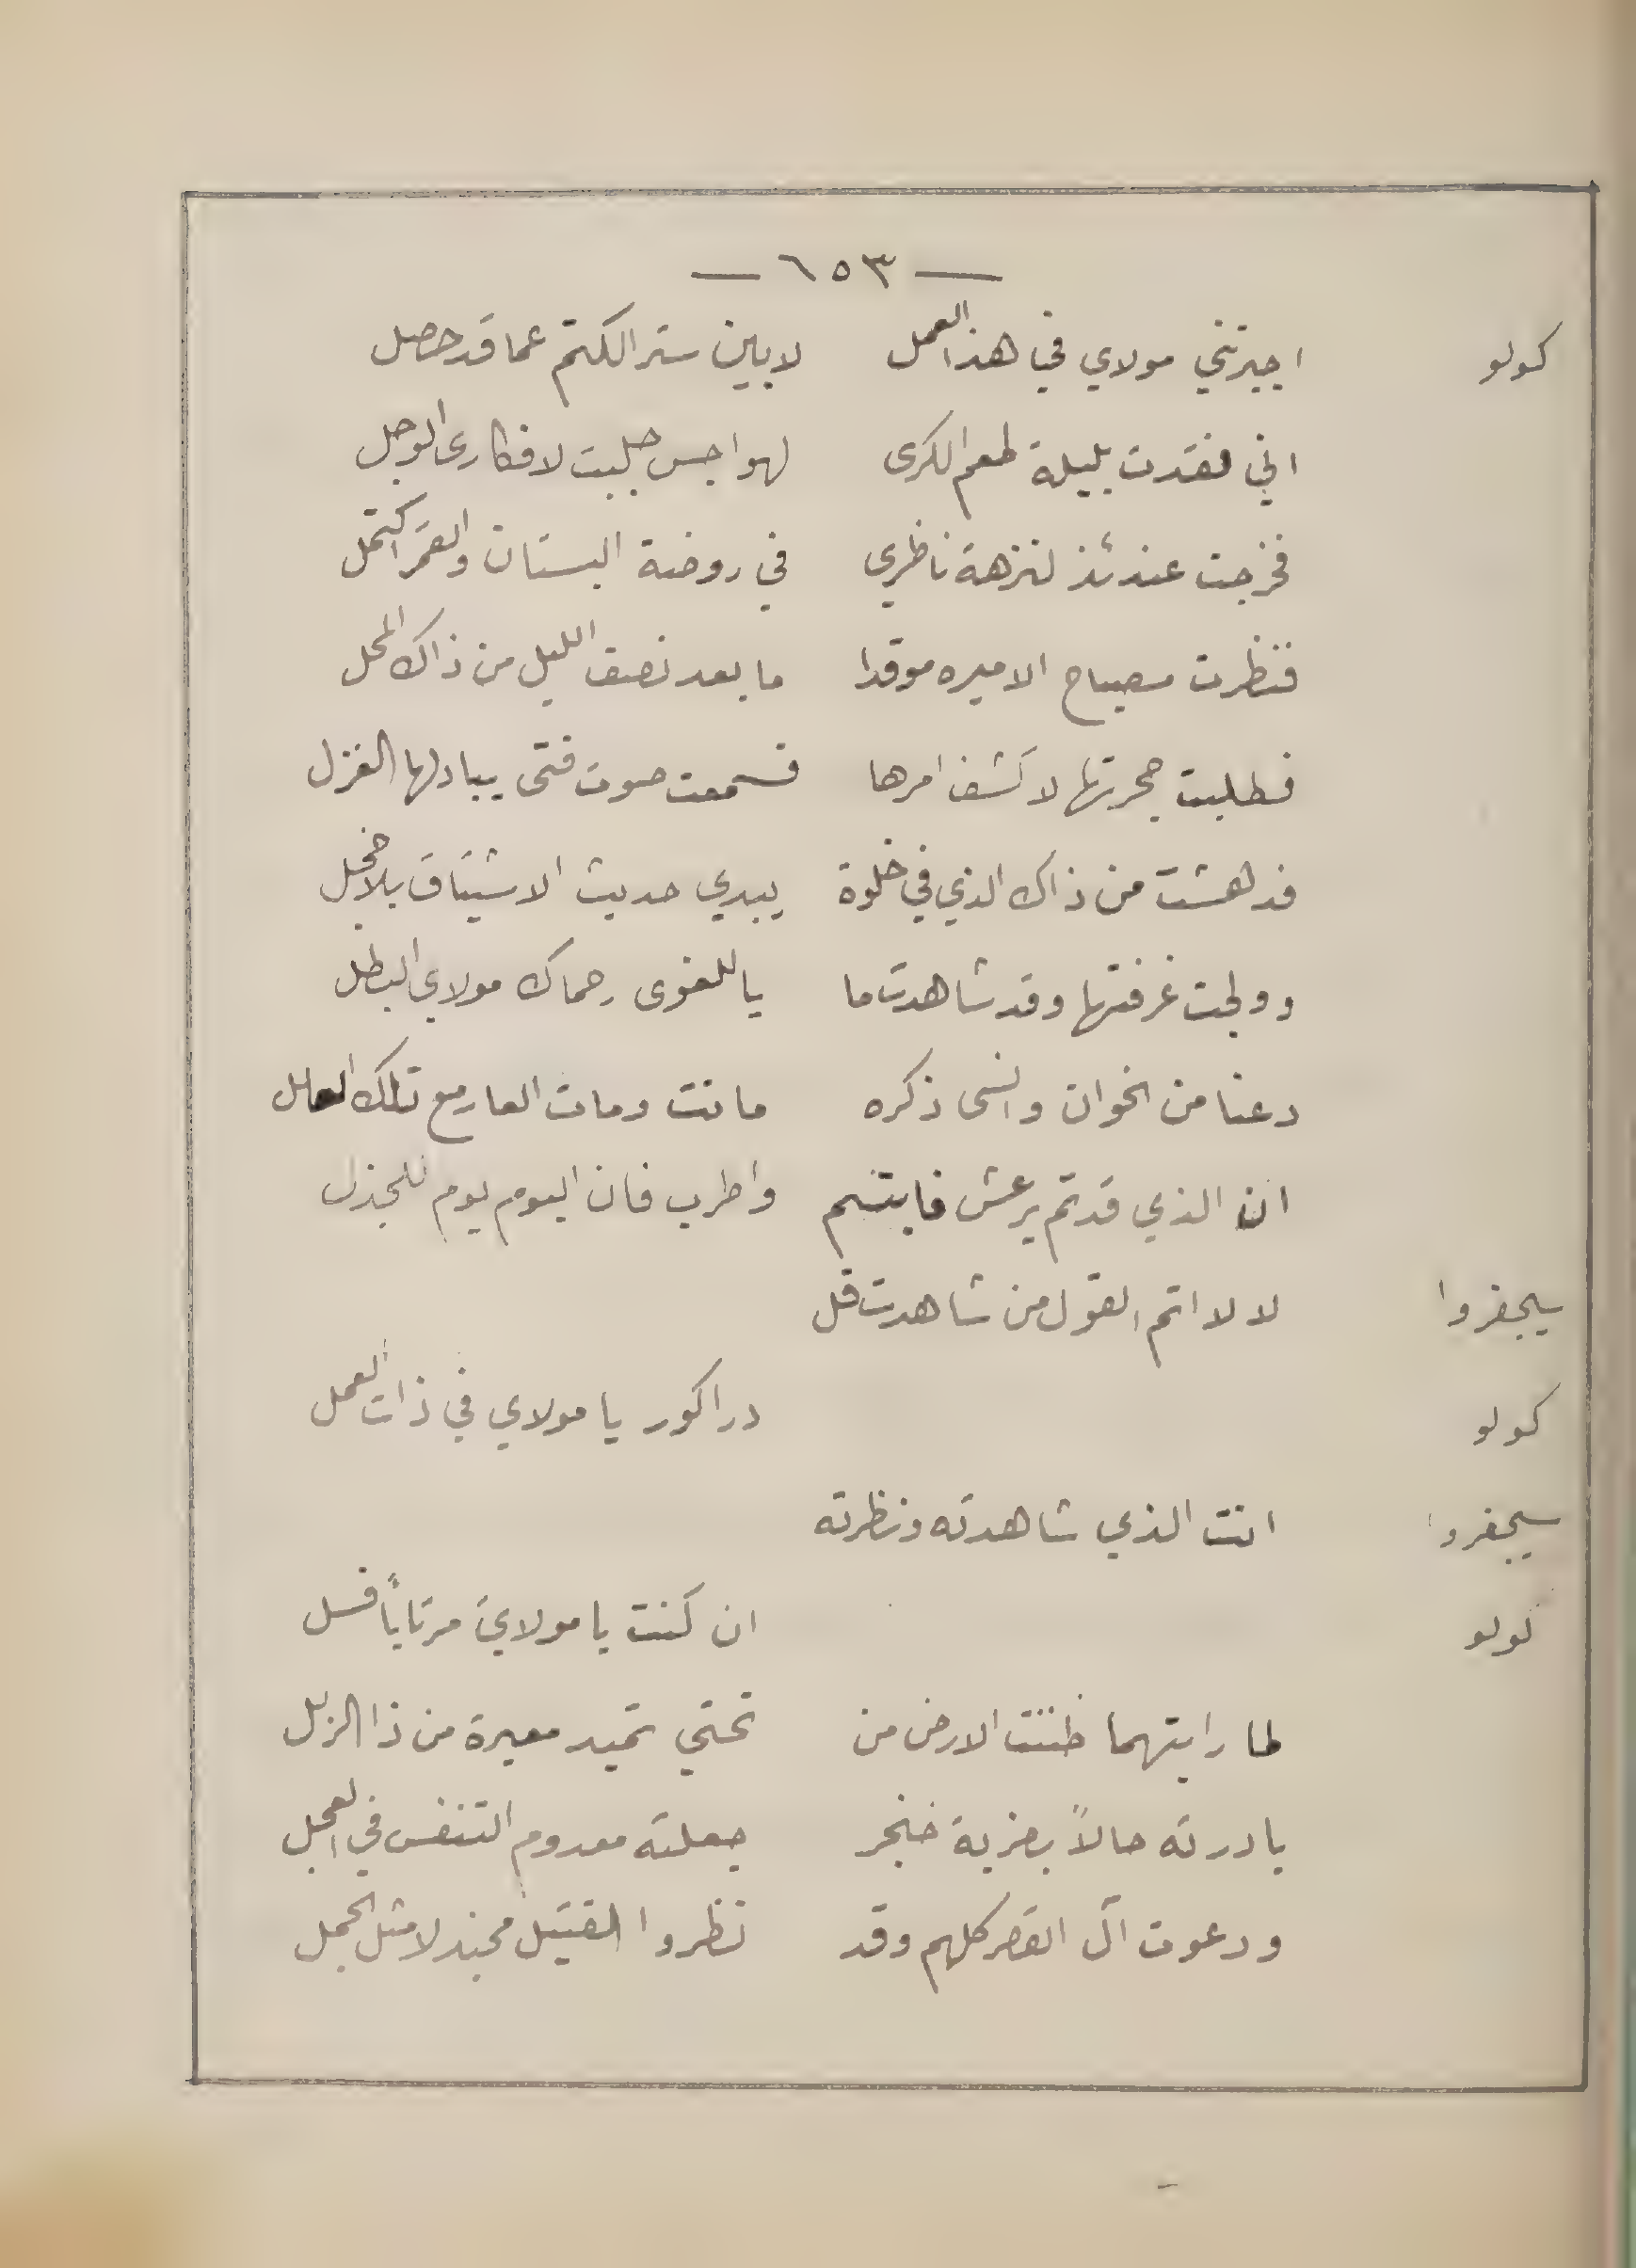 — ٦٥٣ —
كولو اجبرتني مولاي في هذا العمل لابين ستر الكتم عما قد حصل
اني فقدت بليلة طعم الكرى لهواجس جلبت لافكاري الوجل
فخرجت عندئذ لنزهة ناظري في روضة البستان والقمر اكتمل
فنظرت مصباح الاميره موقدا ما بعد نصف الليل من ذاك المحل
فطلبت حجرتها لاكشف امرها فسمعت صوت فتى يبادلها الغزل
فدهشت من ذاك الذي في خلوة يبدي حديث الاشتياق بلا خجل
وولجت غرفتها وقد شاهدت ما يا للغوى رحماك مولاي البطل
دعنا من الخوان وانسى ذكره ماتت ومات العار مع تلك العلل
ان الذي قد تم يرعش فابتسم واطرب فان اليوم يوم للجذل
سيجفروا لا لا اتم القول من شاهدت قل
كولو دراكور يا مولاي في ذات العمل
سيجفروا انت الذي شاهدته ونظرته
كولو ان كنت يا مولاي مرتاباً فسل
لما رايتهما ظننت الارض من تحتي تميد معيرة من ذا الزلل
بادرته حالاً بضربة خنجر جعلته معدوم التنفس في العجل
ودعوت آل القصر كلهم وقد نظروا القتيل مجندلا مثل الجمل